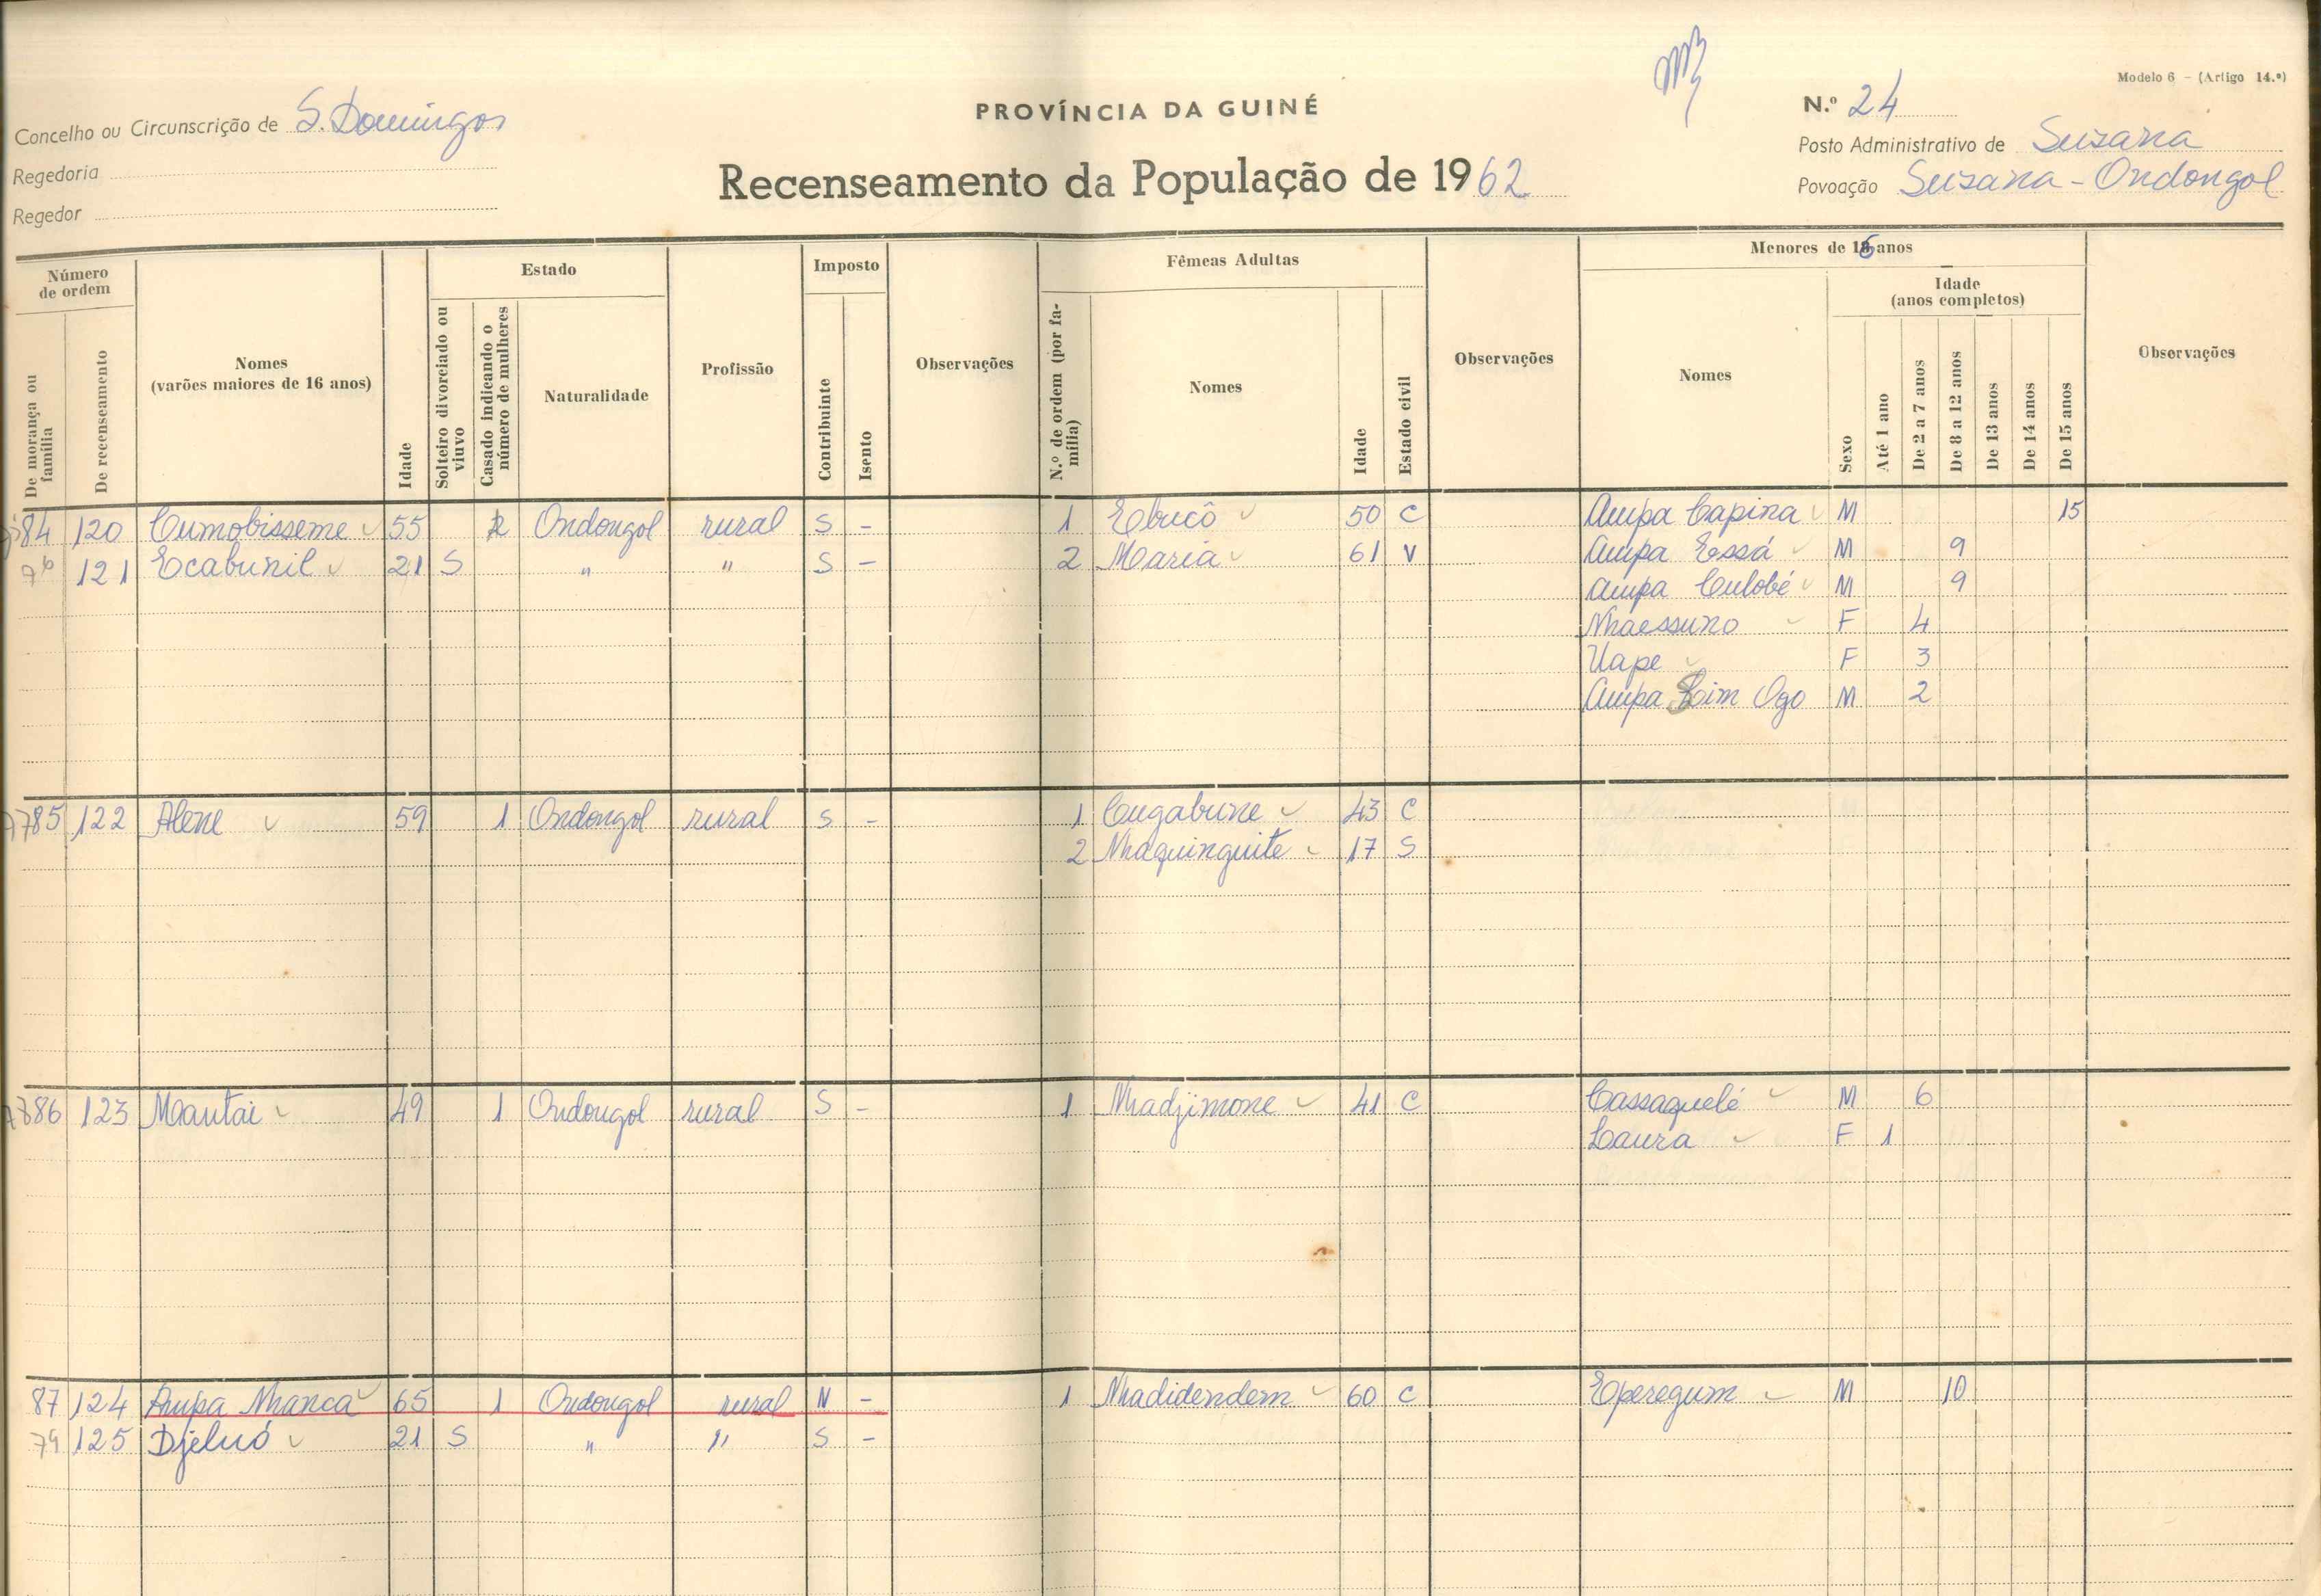 Modelo 6 - (Artigo 14.º)
PROVÍNCIA DA GUINÉ
N.º 24
Concelho ou Circunscrição de S. Domingos
Posto Administrativo de Suzana
Regedoria
Recenseamento da População de 1962
Povoação Suzana - Ondongol
Regedor
Número de ordem
De morança ou família
De recenseamento
Nomes
(varões maiores de 16 anos)
Idade
Estado
Solteiro divorciado ou viuvo
Casado indicando o número de mulheres
Naturalidade
Profissão
Imposto
Contribuinte
Isento
Observações
Fêmeas Adultas
N.º de ordem (por família)
Nomes
Idade
Estado civil
Observações
Menores de 16 anos
Nomes
Sexo
Idade
(anos completos)
Até 1 ano
De 2 a 7 anos
De 8 a 12 anos
De 13 anos
De 14 anos
De 15 anos
Observações
84 120 Cumobisseme 55 2 Ondongol rural S - 1 Ebucô 50 C Ampa Capina M 15
121 Ecabunil 21 S " " S - 2 Maria 61 V Ampa Essá M 9
Ampa Culobé M 9
Nhaessuno F 4
Uape F 3
Ampa Sim Ogo M 2
785 122 Alene 59 1 Ondongol rural S - 1 Cugabune 43 C
2 Nhaquinguite 17 S
86 123 Mantai 49 1 Ondongol rural S - 1 Nhadjimone 41 C Cassaquelé M 6
Laura F 1
87 124 Ampa Nhanca 65 1 Ondongol rural N - 1 Nhadidendem 60 C Eperegum M 10
79 125 Djeluó 21 S " " S -